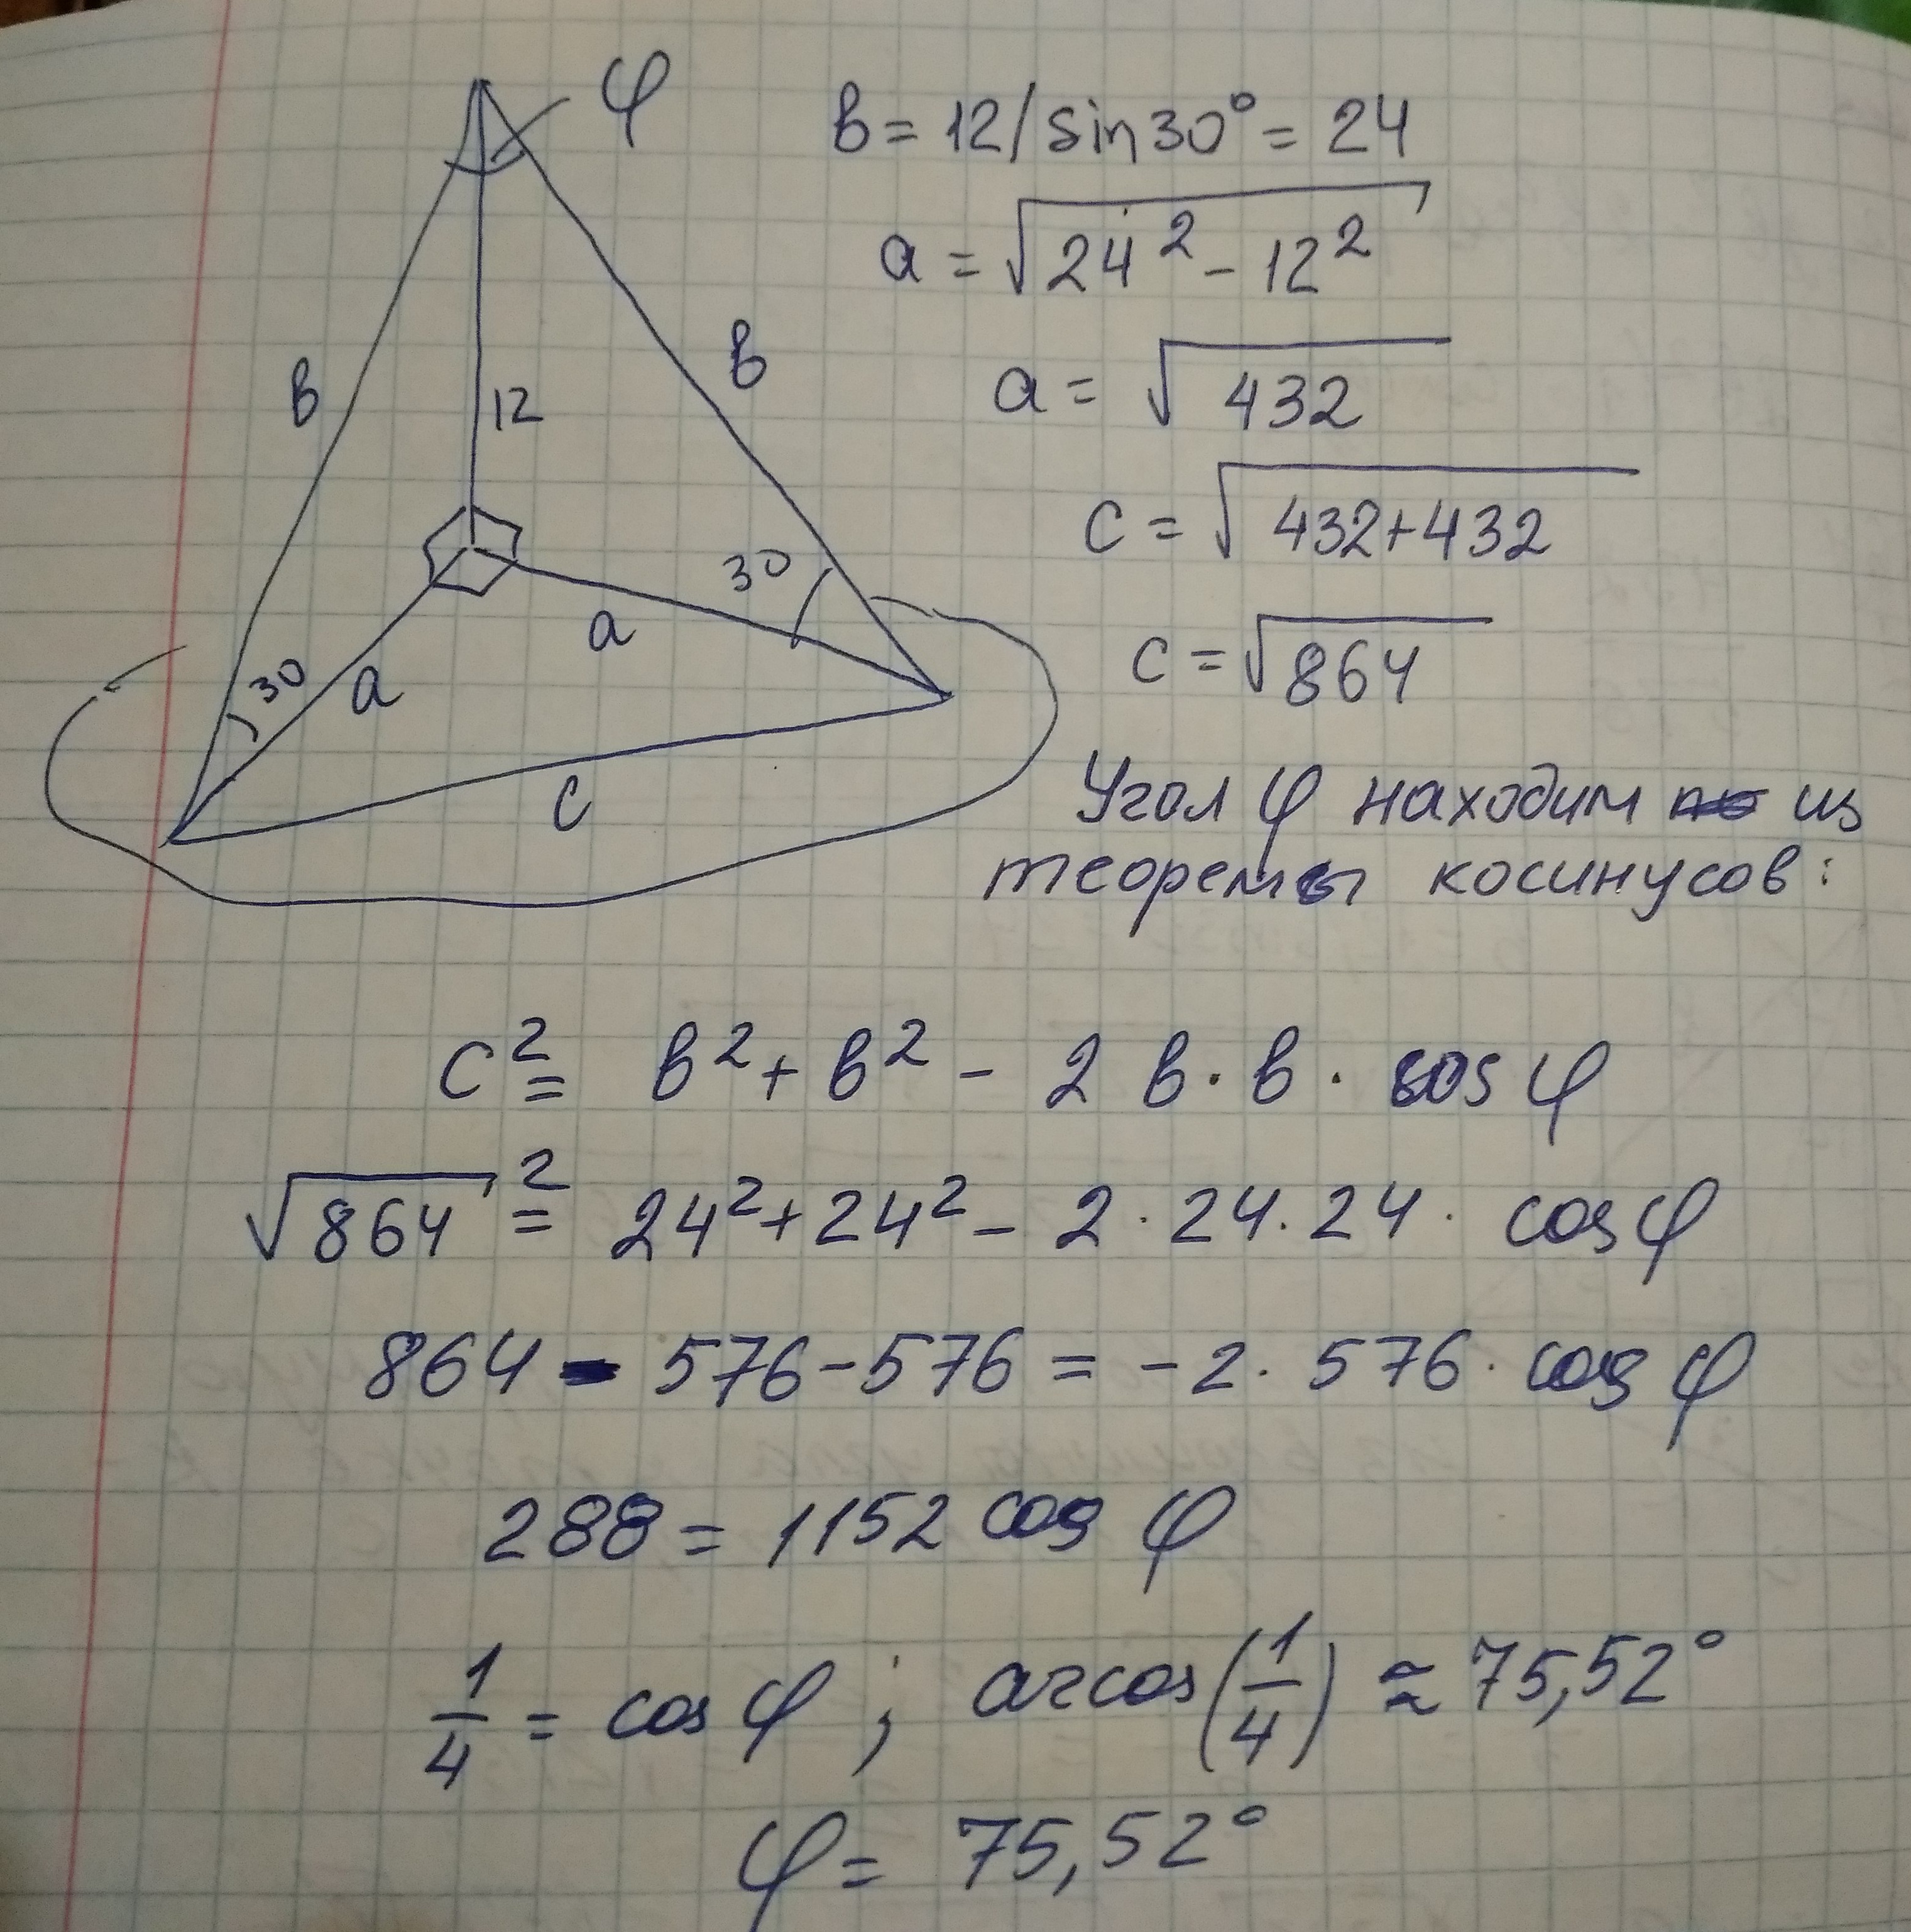 φ
в = 12/sin30° = 24
a = √24² - 12²
в
в
12
a = √432
c = √432+432
30
a
30
a
c = √864
c
Угол φ находим из
теоремы косинусов:
c² = в² + в² - 2 в · в · cos φ
√864² = 24² + 24² - 2 · 24 · 24 · cos φ
864 - 576 - 576 = -2 · 576 · cos φ
288 = 1152 cos φ
1/4 = cos φ ; arcos(1/4) ≈ 75,52°
φ = 75,52°